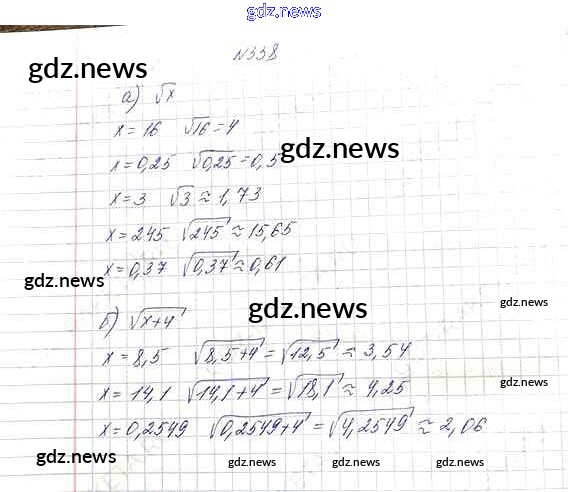 gdz.news
N338
gdz.news
а) √x
x = 16 √16 = 4
x = 0,25 √0,25 = 0,5
gdz.news
x = 3 √3 ≈ 1,73
x = 245 √245 ≈ 15,65
x = 0,37 √0,37 ≈ 0,61
gdz.news gdz.news
gdz.news gdz.news
б) √x+4
x = 8,5 √8,5+4 = √12,5 ≈ 3,54
x = 14,1 √14,1+4 = √18,1 ≈ 4,25
gdz.news
x = 0,2549 √0,2549+4 = √4,2549 ≈ 2,06
gdz.news gdz.news gdz.news gdz.news